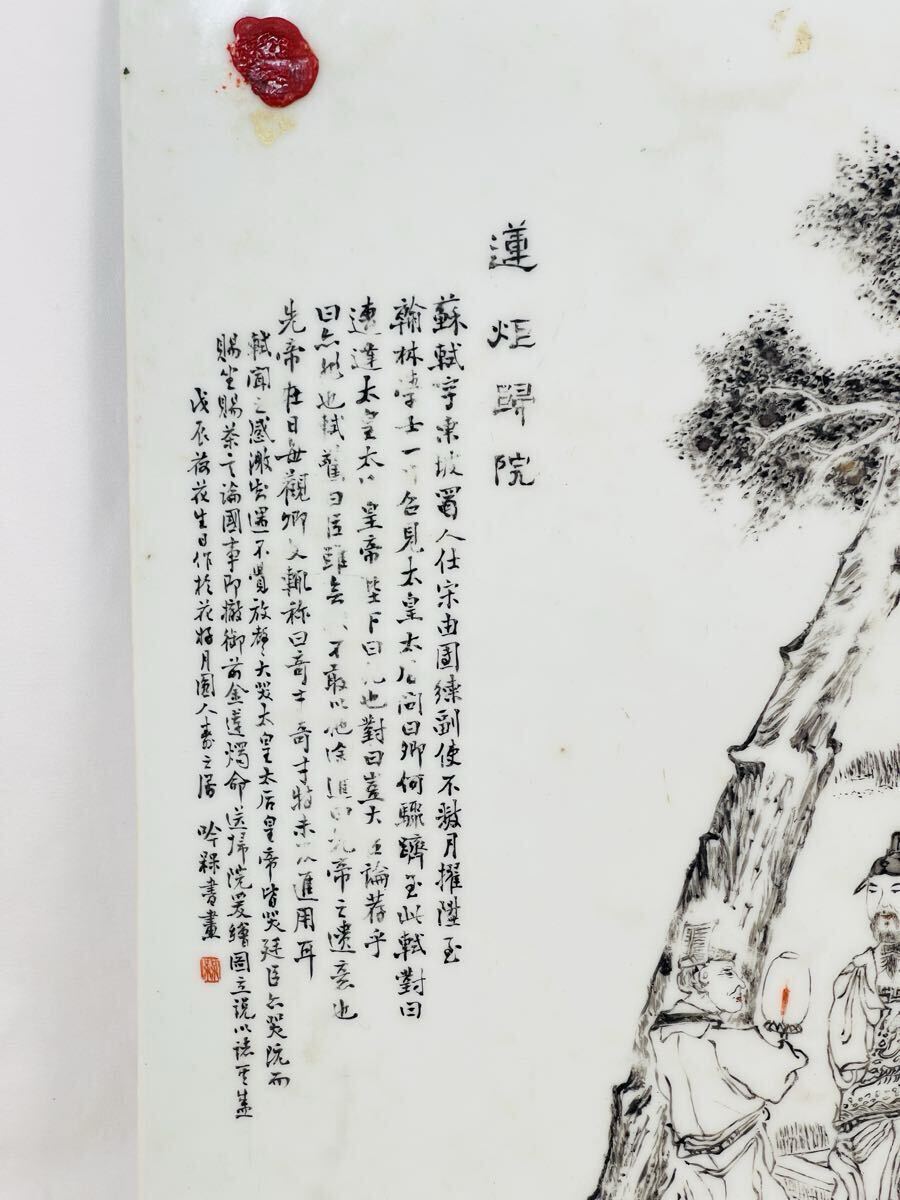 蓮炬歸院
蘇軾字東坡蜀人仕宋由團練副使不數月擢陞至
翰林學士一日召見太皇太后問曰卿何驟躋至此軾對曰
遭逢太皇太后皇帝陛下曰非也對曰豈大臣論荐乎
曰亦非也軾驚曰臣雖無 不敢以他途進曰先帝之遺意也
先帝在日每觀卿文輒称曰奇才奇才特未及進用耳
軾聞之感激知遇不覺放聲大哭太皇太后皇帝皆哭廷臣亦哭既而
賜坐賜茶之論國事即撤御前金蓮燭命送歸院爰繪圖立說以誌其盛
戊辰荷花生日作於花好月圓人壽之居 吟 書畫